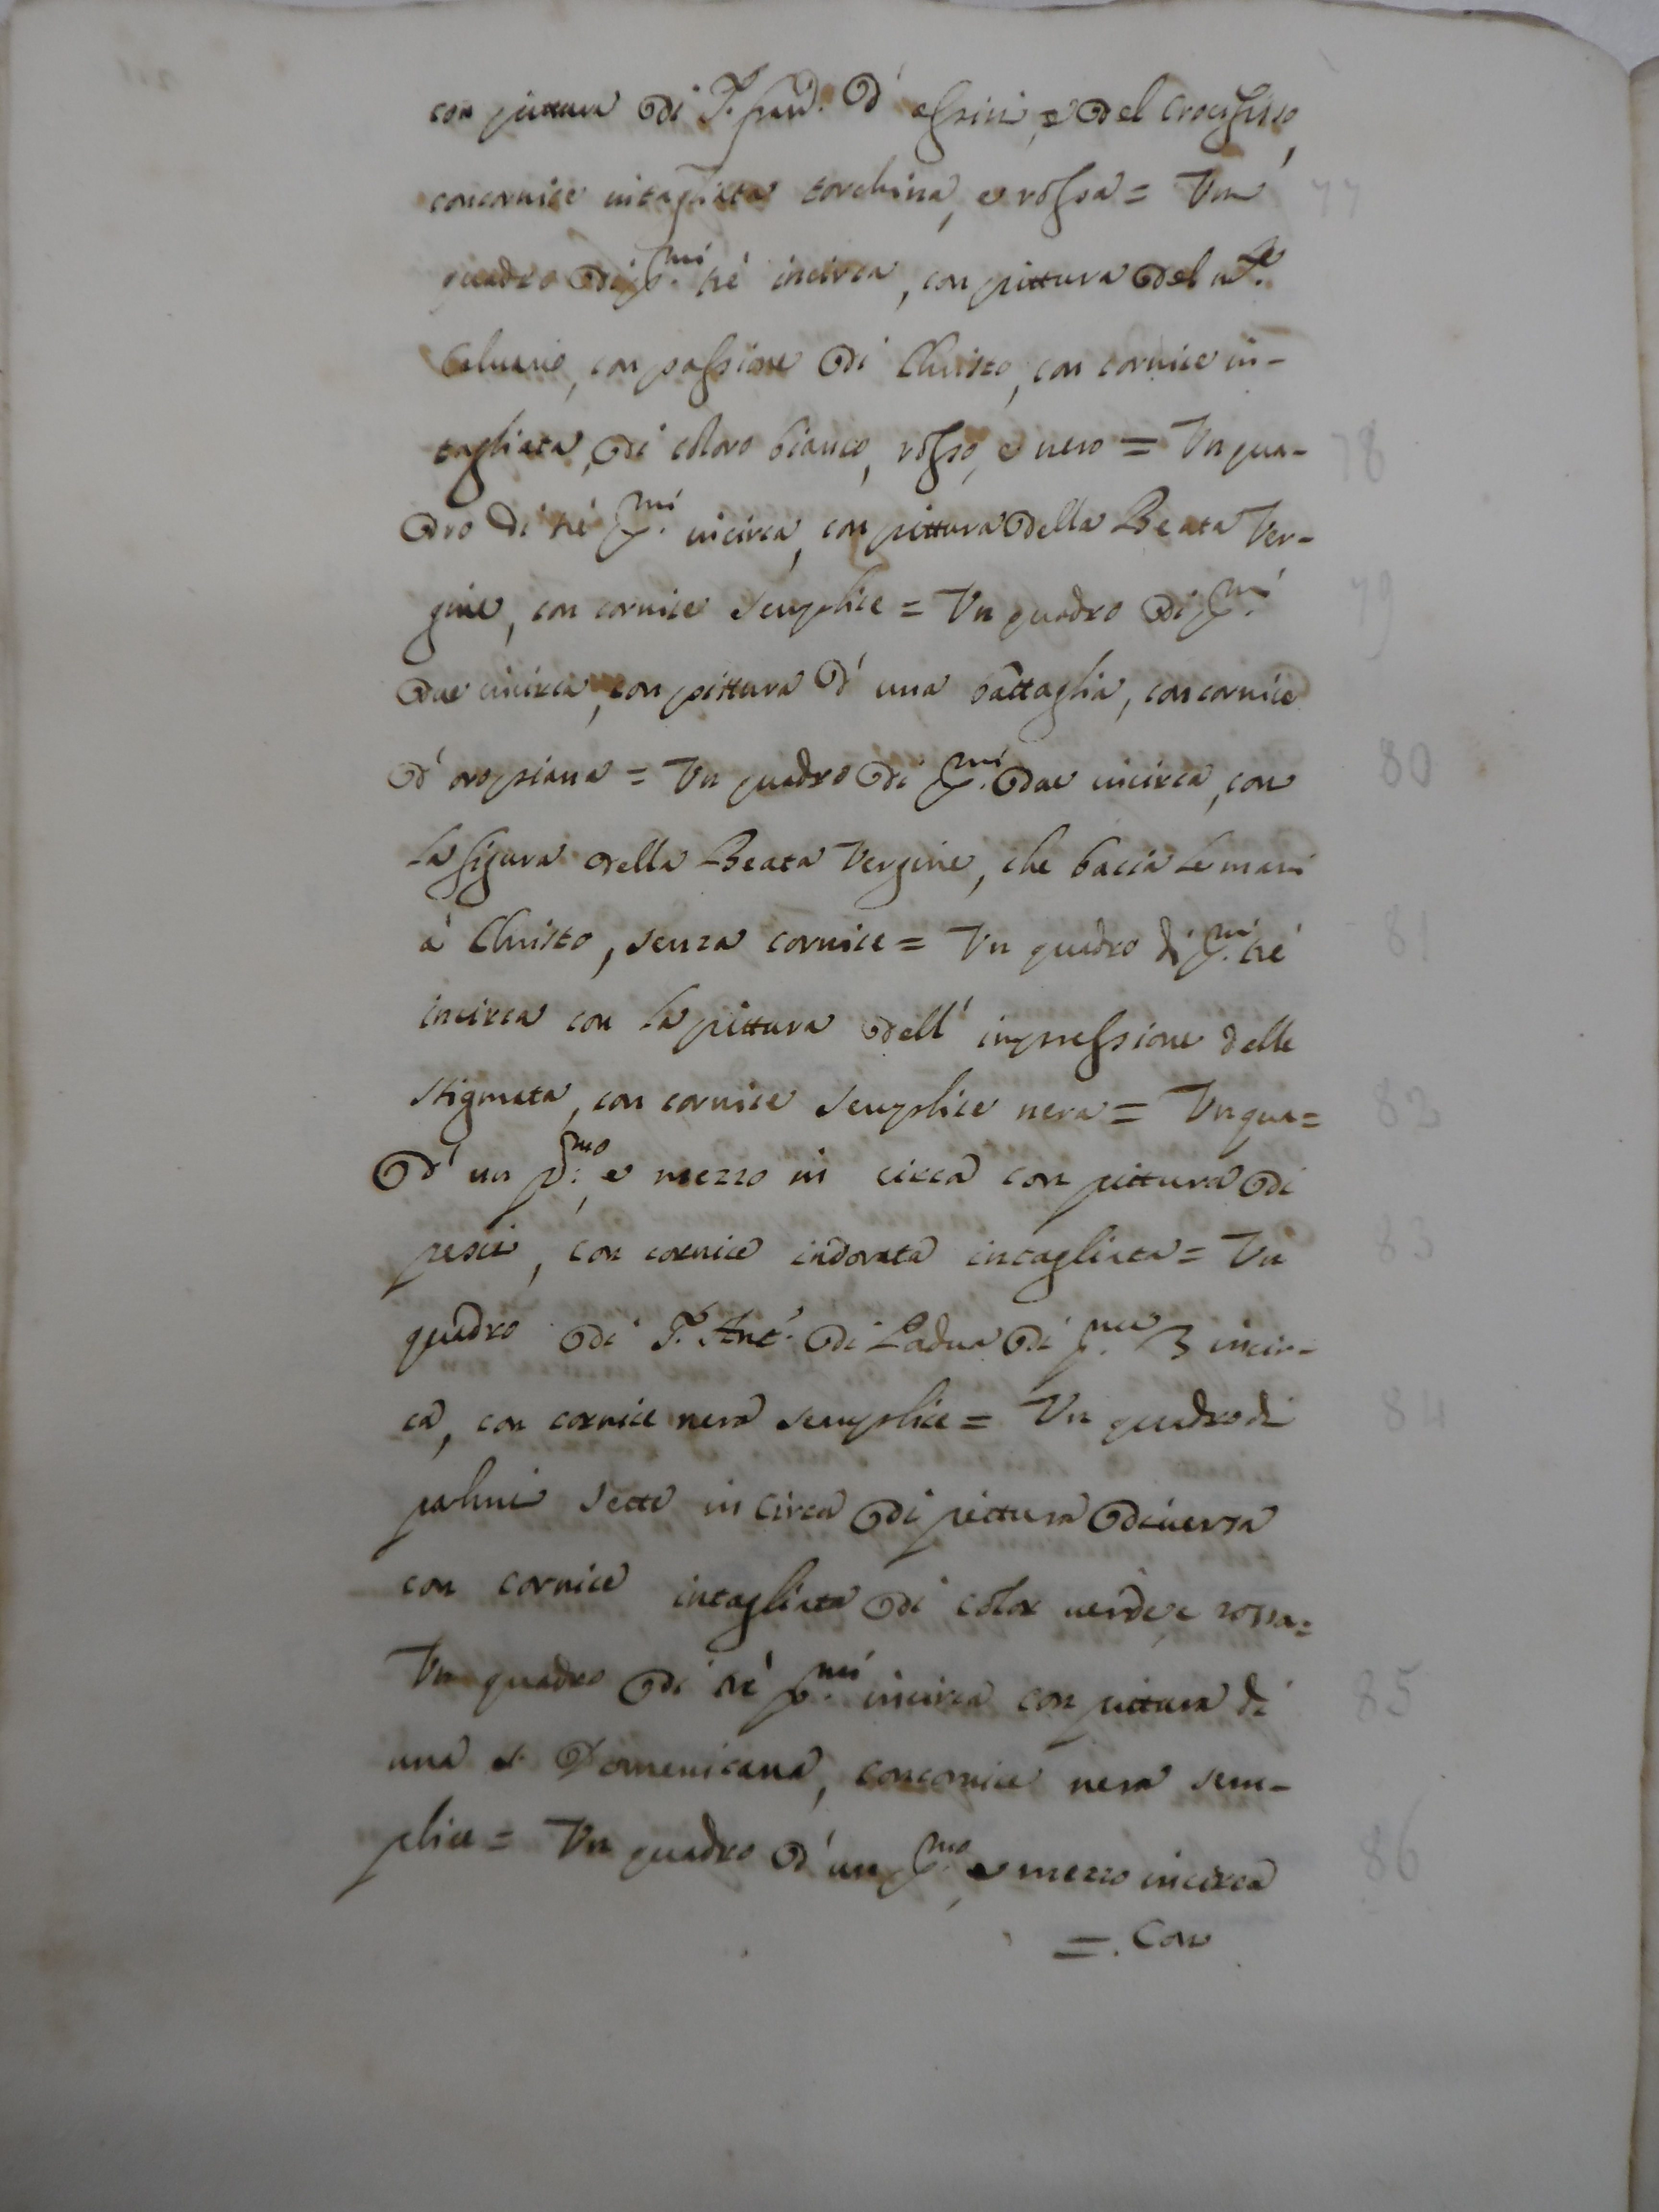 con pittura di S. Fran.co d'Assisi, e del Crocifisso,
con cornice intagliata torchina, e rossa = Un 77
quadro di p.mi trè incirca, con pittura del M.te
Calvario, con passione di Christo, con cornice in-
tagliata, di coloro bianco, rosso, e nero = Un qua- 78
dro di trè p.mi incirca, con pittura della Beata Ver-
gine, con cornice semplice = Un quadro di p.mi 79
due incirca, con pittura d'una battaglia, con cornice
d'oro piana = Un quadro di p.mi due incirca, con 80
la figura della Beata Vergine, che baccia le mani
à Christo, senza cornice = Un quadro di p.mi trè 81
incirca con la pittura dell'impressione delle
stigmata, con cornice semplice nera = Un qua= 82
d'un p.mo, e mezzo in circa con pittura di
pesci, con cornice indorata intagliata = Un 83
quadro di S. Ant.o di Padua di p.mi 3 incir-
ca, con cornice nera semplice = Un quadro di 84
palmi sette in circa di pittura diversa
con cornice intagliata di color verde, e rossa=
Un quadro di trè p.mi incirca con pittura di 85
una S. Domenicana, con cornice nera sem-
plice = Un quadro d'un p.mo, e mezzo incirca 86
=. Con